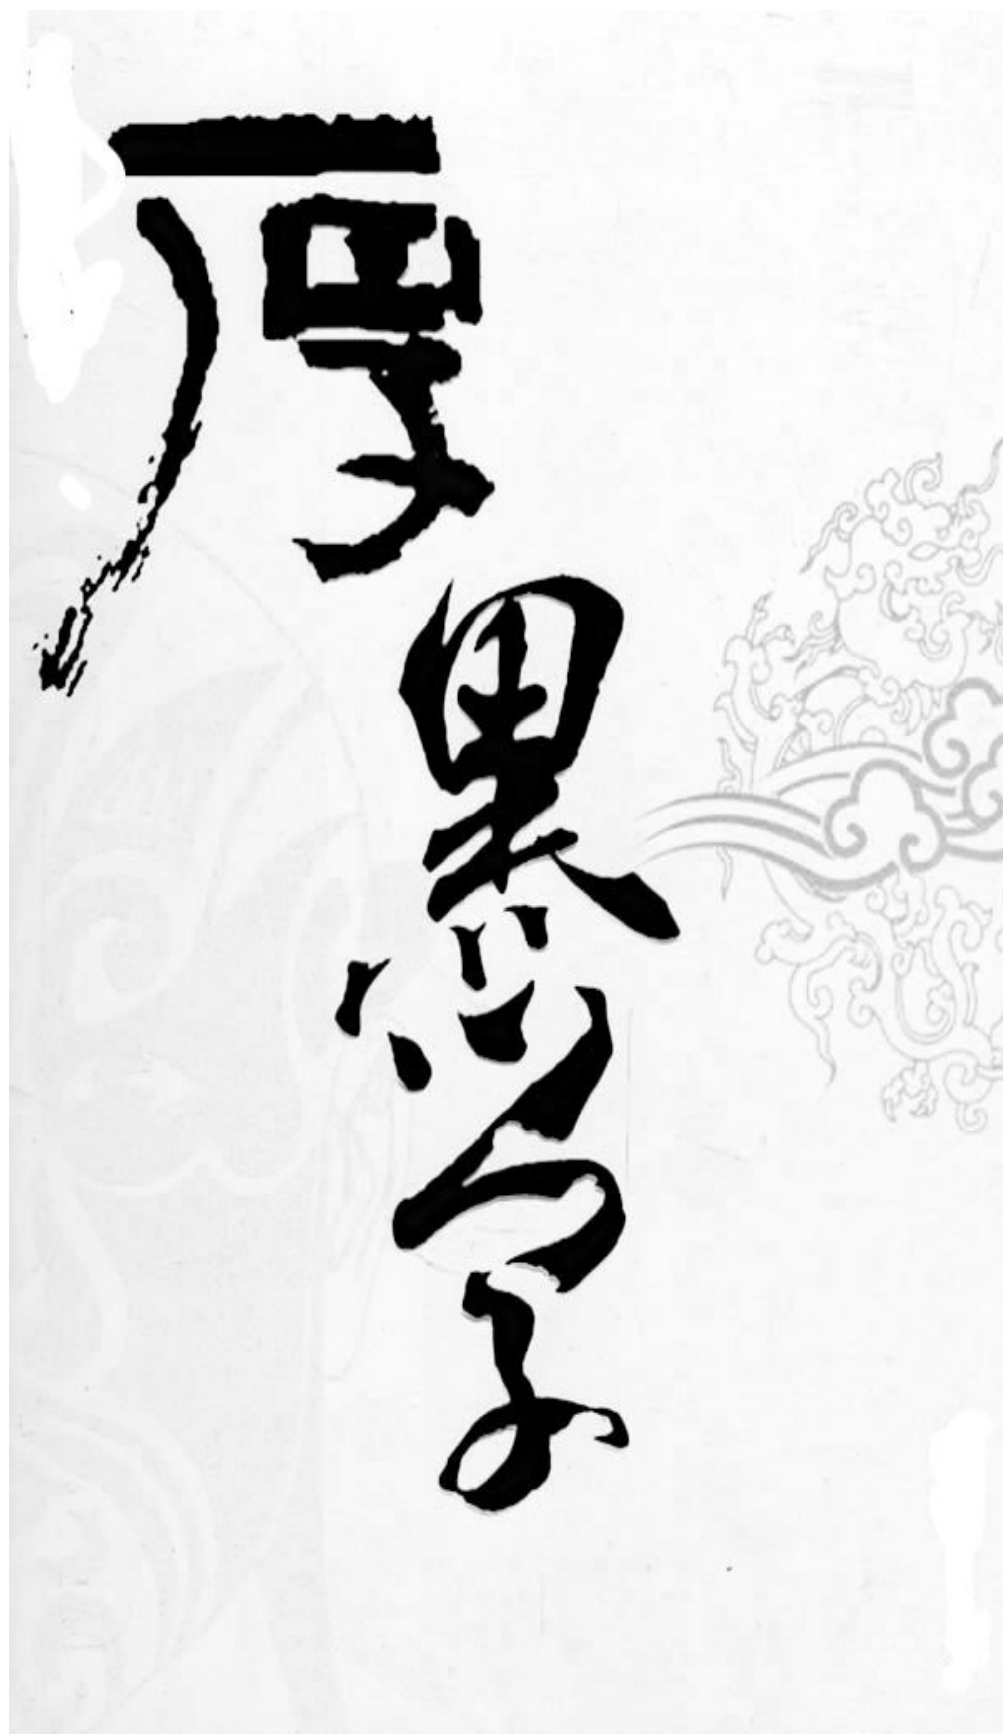 厚黑学